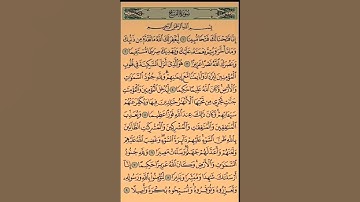 سورة الفتح
بِسْمِ اللَّهِ الرَّحْمَٰنِ الرَّحِيمِ
إِنَّا فَتَحْنَا لَكَ فَتْحًا مُّبِينًا ۝ لِّيَغْفِرَ لَكَ اللَّهُ مَا تَقَدَّمَ مِن ذَنۢبِكَ
وَمَا تَأَخَّرَ وَيُتِمَّ نِعْمَتَهُۥ عَلَيْكَ وَيَهْدِيَكَ صِرَٰطًا مُّسْتَقِيمًا ۝
وَيَنصُرَكَ اللَّهُ نَصْرًا عَزِيزًا ۝ هُوَ الَّذِىٓ أَنزَلَ السَّكِينَةَ فِى قُلُوبِ
الْمُؤْمِنِينَ لِيَزْدَادُوٓا۟ إِيمَٰنًا مَّعَ إِيمَٰنِهِمْ ۗ وَلِلَّهِ جُنُودُ السَّمَٰوَٰتِ
وَالْأَرْضِ ۚ وَكَانَ اللَّهُ عَلِيمًا حَكِيمًا ۝ لِّيُدْخِلَ الْمُؤْمِنِينَ وَالْمُؤْمِنَٰتِ
جَنَّٰتٍ تَجْرِى مِن تَحْتِهَا الْأَنْهَٰرُ خَٰلِدِينَ فِيهَا وَيُكَفِّرَ عَنْهُمْ
سَيِّـَٔاتِهِمْ ۚ وَكَانَ ذَٰلِكَ عِندَ اللَّهِ فَوْزًا عَظِيمًا ۝ وَيُعَذِّبَ
الْمُنَٰفِقِينَ وَالْمُنَٰفِقَٰتِ وَالْمُشْرِكِينَ وَالْمُشْرِكَٰتِ الظَّآنِّينَ
بِاللَّهِ ظَنَّ السَّوْءِ ۚ عَلَيْهِمْ دَآئِرَةُ السَّوْءِ ۖ وَغَضِبَ اللَّهُ عَلَيْهِمْ
وَلَعَنَهُمْ وَأَعَدَّ لَهُمْ جَهَنَّمَ ۖ وَسَآءَتْ مَصِيرًا ۝ وَلِلَّهِ جُنُودُ
السَّمَٰوَٰتِ وَالْأَرْضِ ۚ وَكَانَ اللَّهُ عَزِيزًا حَكِيمًا ۝ إِنَّآ
أَرْسَلْنَٰكَ شَٰهِدًا وَمُبَشِّرًا وَنَذِيرًا ۝ لِّتُؤْمِنُوا۟ بِاللَّهِ وَرَسُولِهِۦ
وَتُعَزِّرُوهُ وَتُوَقِّرُوهُ وَتُسَبِّحُوهُ بُكْرَةً وَأَصِيلًا ۝